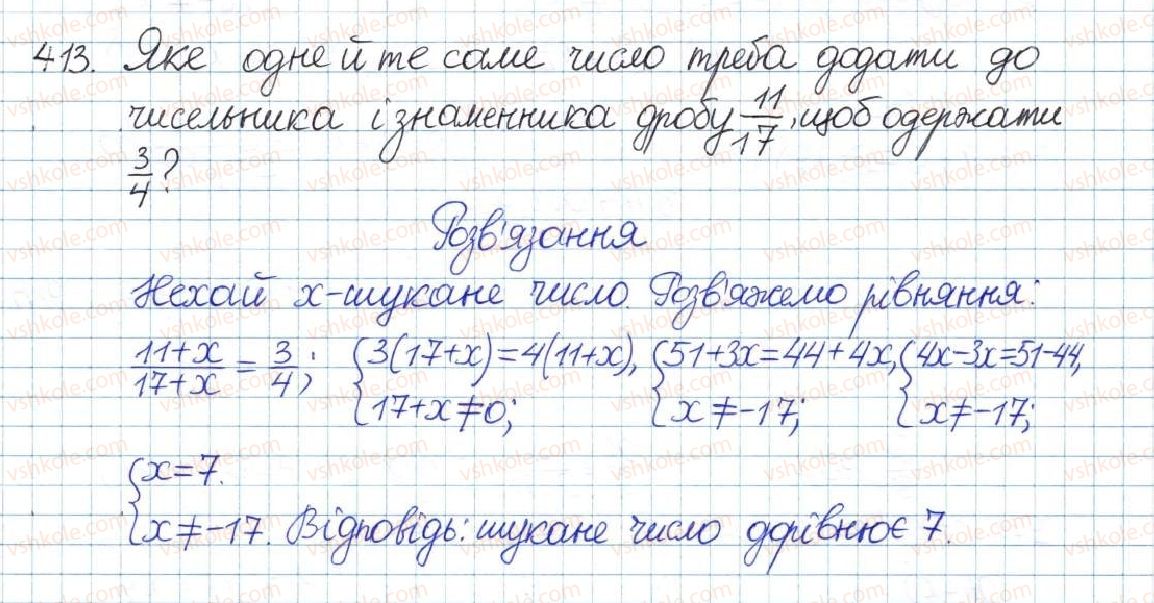 413. Яке одне й те саме число треба додати до
чисельника і знаменника дробу 11/17, щоб одержати
3/4?
Розв'язання
Нехай x-шукане число. Розв'яжемо рівняння:
(11+x)/(17+x) = 3/4; {3(17+x)=4(11+x), {51+3x=44+4x, {4x-3x=51-44,
{17+x≠0; {x≠-17; {x≠-17;
{x=7.
{x≠-17. Відповідь: шукане число дорівнює 7.